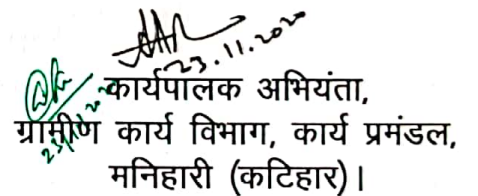 23.11.2020
कार्यपालक अभियंता,
ग्रामीण कार्य विभाग, कार्य प्रमंडल,
मनिहारी (कटिहार)।